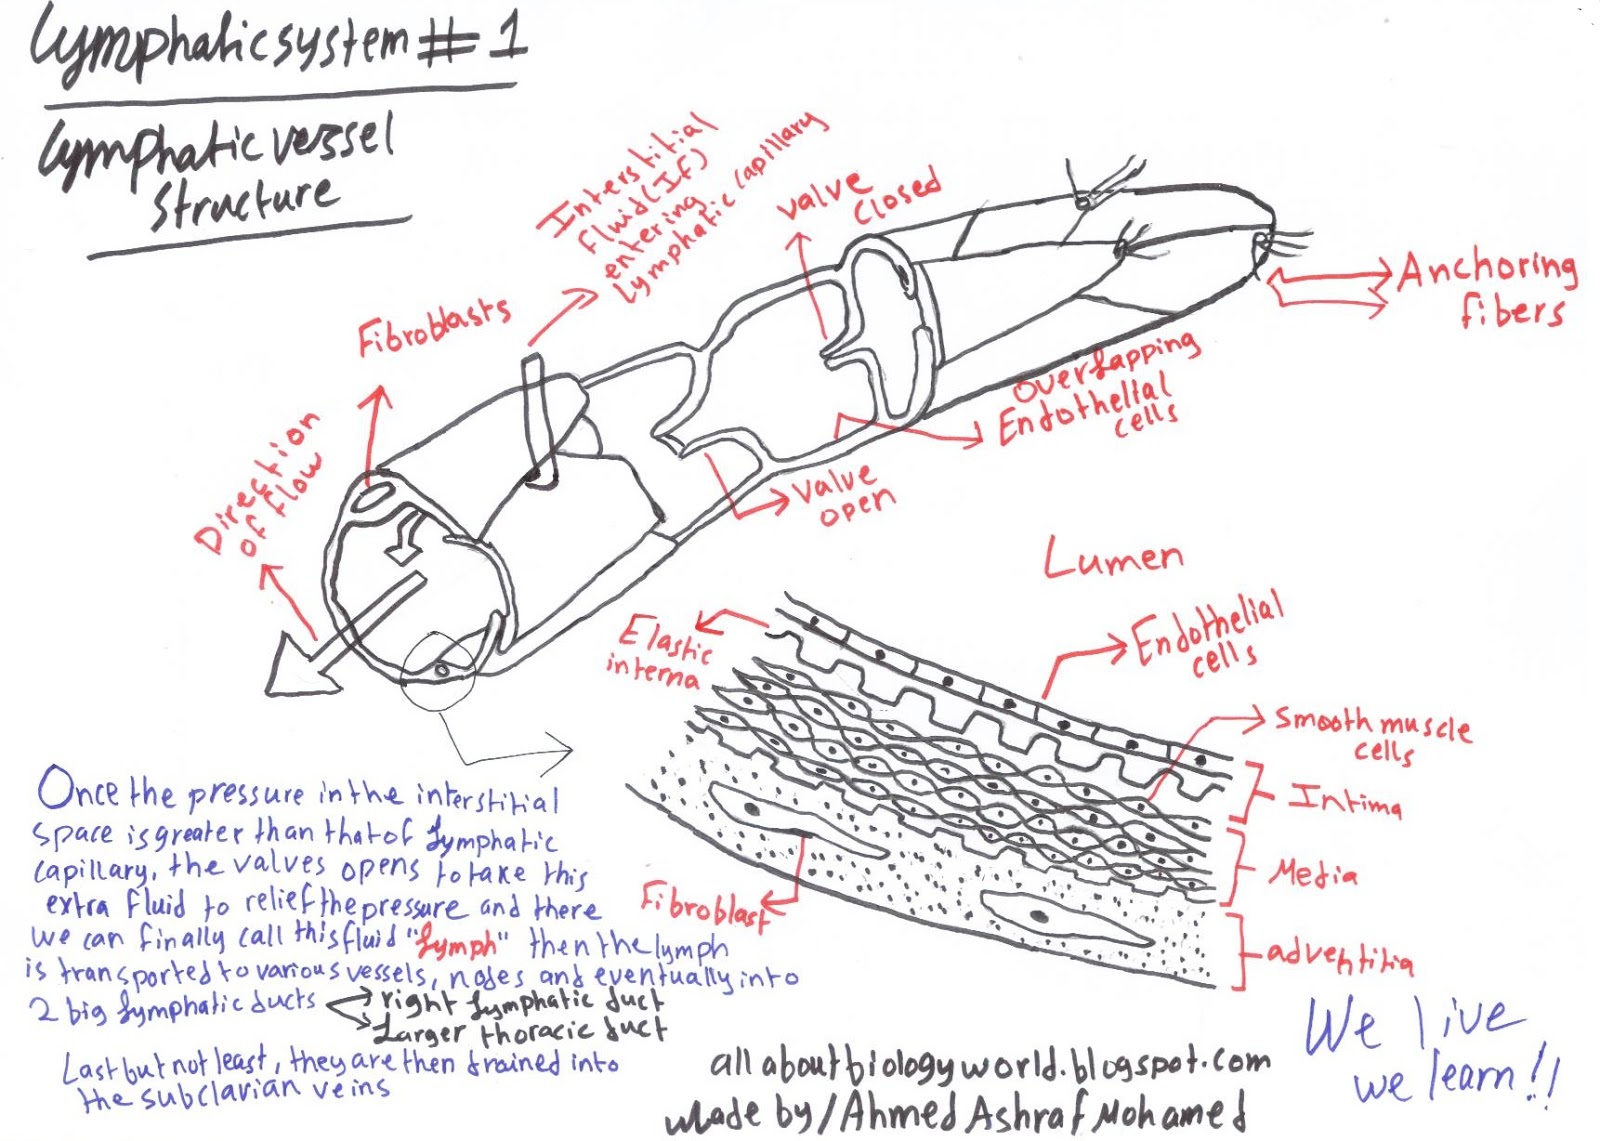 Lymphatic system # 1
Lymphatic vessel
structure
Interstitial
fluid (If)
entering
lymphatic capillary
valve
closed
Fibroblasts
Anchoring
fibers
Overlapping
Endothelial
cells
Direction
of flow
valve
open
Lumen
Elastic
interna
Endothelial
cells
Smooth muscle
cells
Intima
Media
Fibroblast
adventitia
Once the pressure in the interstitial
space is greater than that of lymphatic
capillary, the valves opens to take this
extra fluid to relief the pressure and there
we can finally call this fluid "lymph" then the lymph
is transported to various vessels, nodes and eventually into
2 big lymphatic ducts
right lymphatic duct
Larger thoracic duct
Last but not least, they are then drained into
the subclavian veins
We live
we learn!!
allaboutbiologyworld.blogspot.com
Made by/Ahmed Ashraf Mohamed